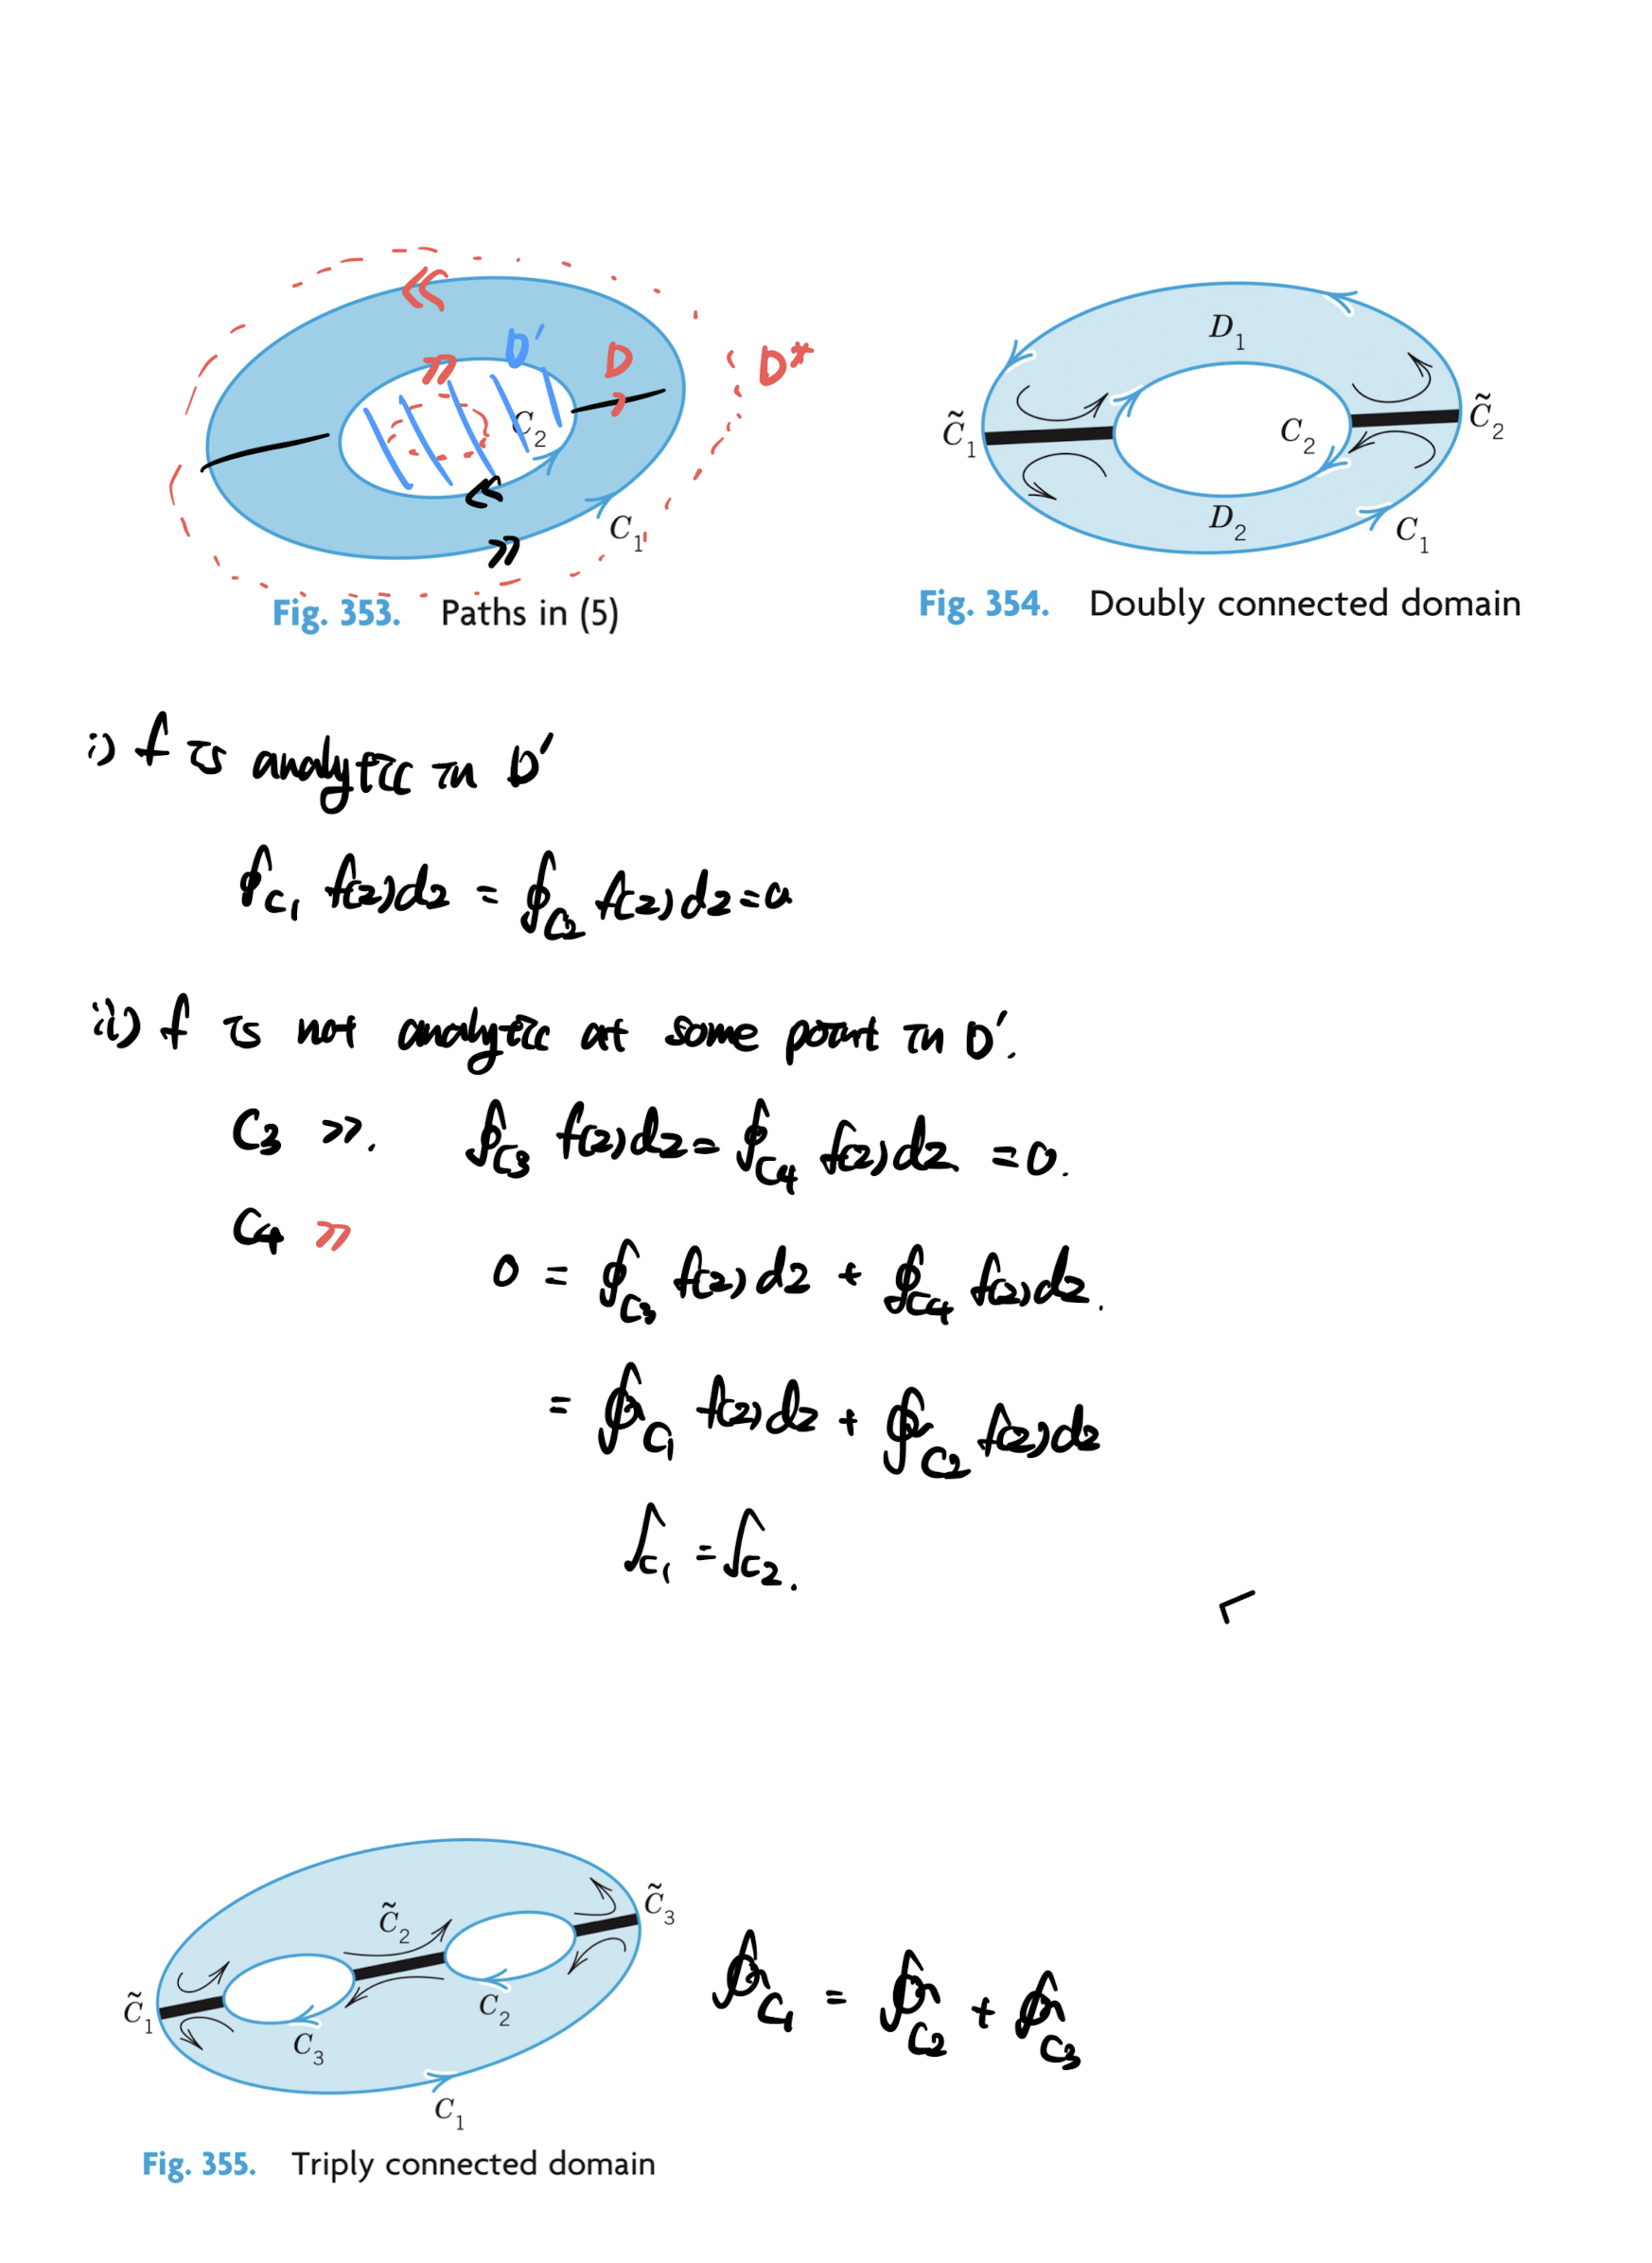 D*
D'
D
C2
C1
Fig. 353. Paths in (5)
D1
C̃1
C2
C̃2
D2
C1
Fig. 354. Doubly connected domain
i) f is analytic in D'
∮C1 f(z)dz = ∮C2 f(z)dz = 0
ii) f is not analytic at some point in D'.
C3 >>. ∮C3 f(z)dz = ∮C4 f(z)dz = 0.
C4 >>
0 = ∮C3 f(z)dz + ∮C4 f(z)dz.
= ∮C1 f(z)dz + ∮C2 f(z)dz
∫C1 = ∫C2.
C̃3
C̃2
C̃1
C2
C3
C1
∮C1 = ∮C2 + ∮C3
Fig. 355. Triply connected domain